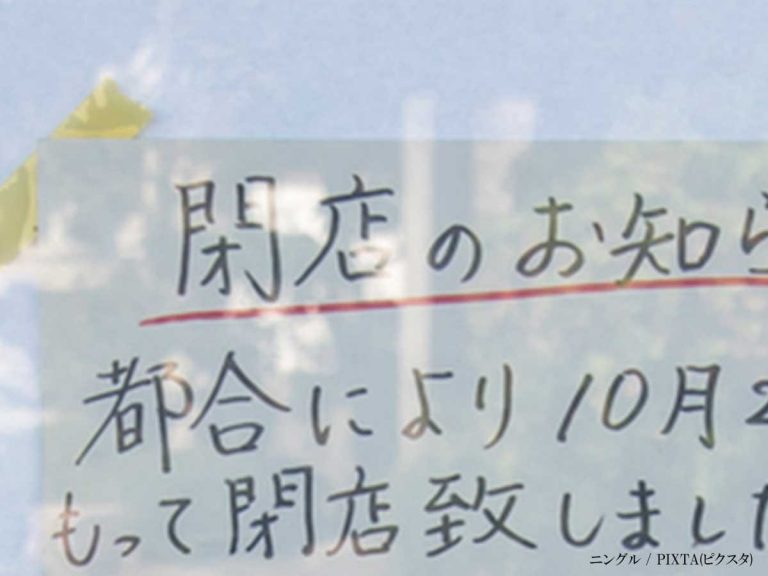 閉店のお知ら
都合により10月2
もって閉店致しました
ニングル / PIXTA(ピクスタ)